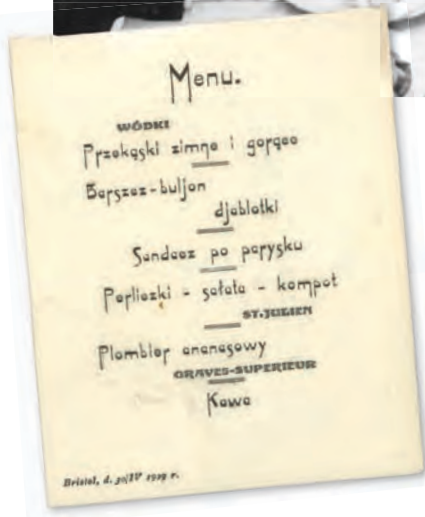 Menu.
WÓDKI
Przekąski zimne i gorące
Barszcz-buljon
djablotki
Sandacz po parysku
Perliczki - sałata - kompot
ST. JULIEN
Plombier ananasowy
GRAVES-SUPERIEUR
Kawa
Bristol, d. 30/IV 1929 r.